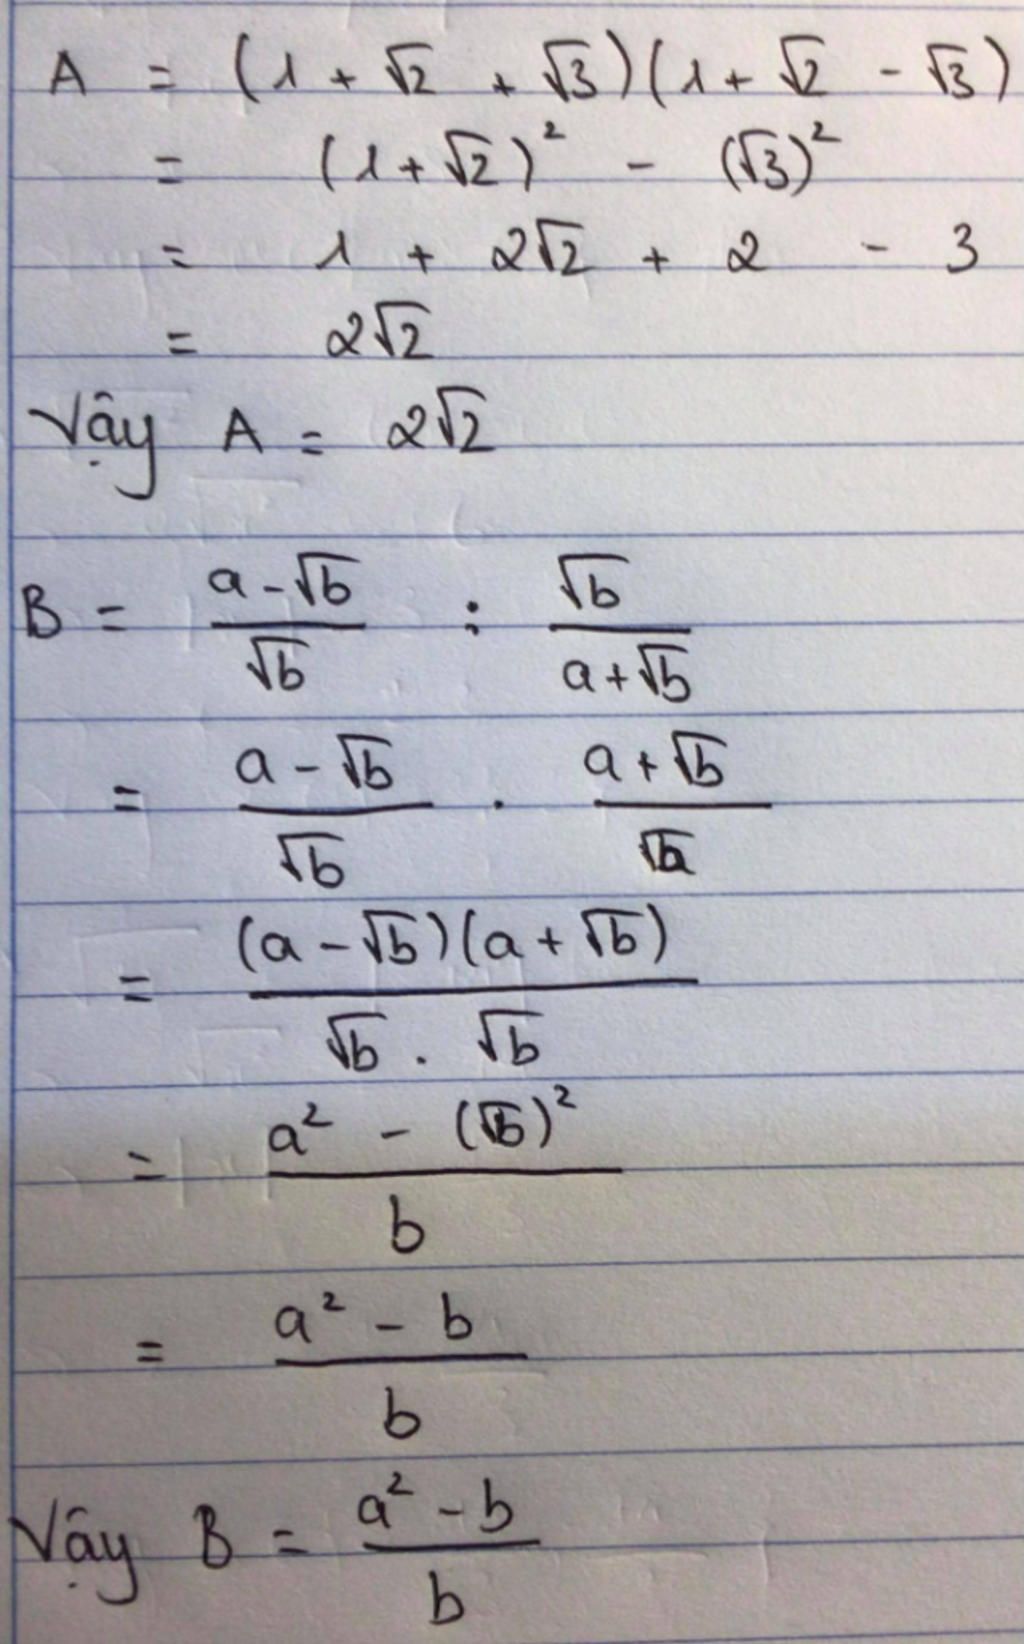 A = (1 + √2 + √3)(1 + √2 - √3)
= (1 + √2)² - (√3)²
= 1 + 2√2 + 2 - 3
= 2√2
Vậy A = 2√2
B = (a - √b)/√b : √b/(a + √b)
= (a - √b)/√b . (a + √b)/√b
= (a - √b)(a + √b)/(√b . √b)
= (a² - (√b)²)/b
= (a² - b)/b
Vậy B = (a² - b)/b